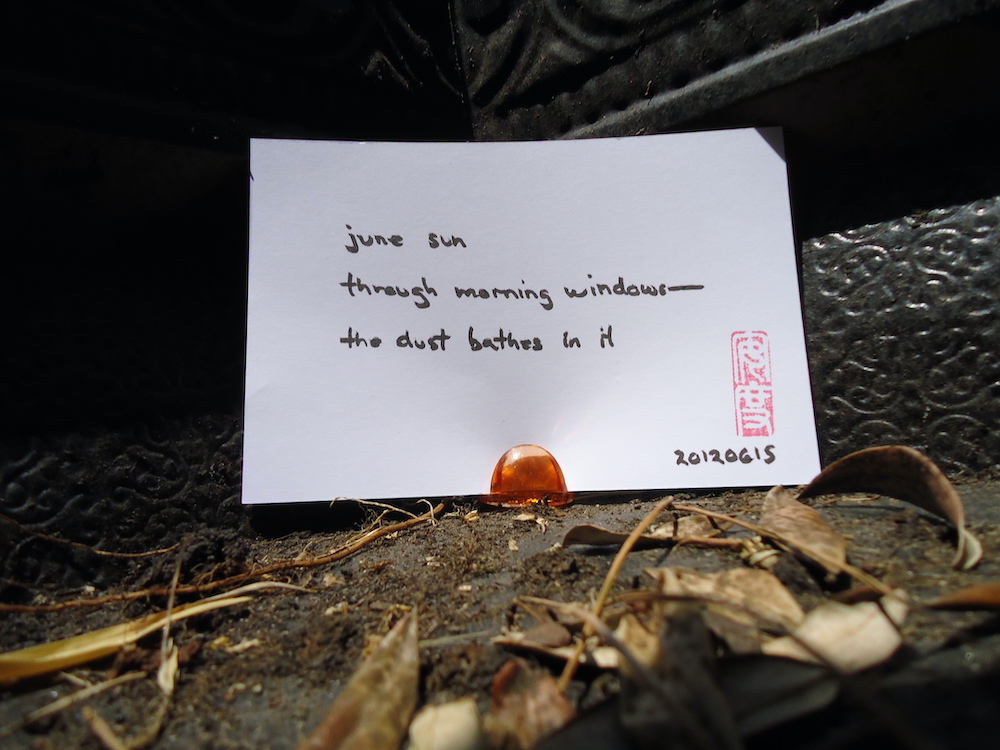 june sun
through morning windows—
the dust bathes in it
20120615